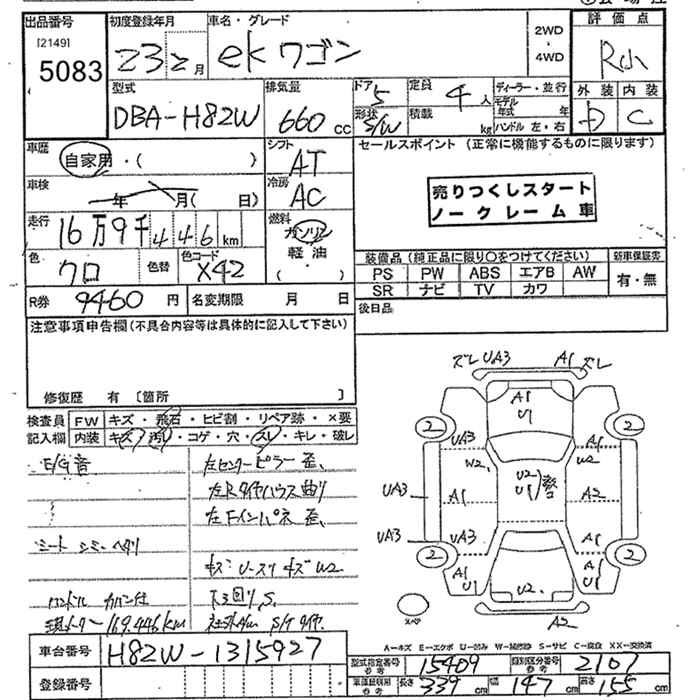 出品番号
[2149]
5083
初度登録年月
23 2 月
車名・グレード
ekワゴン
2WD
・
4WD
評価点
R小
外装 内装
D C
型式
DBA-H82W
排気量
660 cc
ドア 5
形状 S/W
定員 4 人
積載 kg
ディーラー・並行
モデル年式 年
ハンドル 左・右
車歴
自家用・( )
シフト
AT
セールスポイント (正常に機能するものに限ります)
売りつくしスタート
ノークレーム車
車検 年 月( 日)
冷房
AC
走行
16万9千446km
燃料
ガソリン
軽油
( )
色
クロ
色替
色コード
X42
装備品 (純正品に限り〇をつけてください) 新車保証書
PS PW ABS エアB AW 有・無
SR ナビ TV カワ
R券 9460 円 名変期限 月 日
後日品
注意事項申告欄(不具合内容等は具体的に記入して下さい)
修復歴 有 [箇所 ]
検査員記入欄
FW キズ・飛石・ヒビ割・リペア跡・×要
内装 キズ・汚れ・コゲ・穴・スレ・キレ・破レ
E/G音 左センターピラー歪、
左Rタイヤハウス曲り
左Fインパネ歪、
シート シミ・ヘタリ
キズ U-スリ キズ W2
ハンドル カバー付
現メーター169.446km 社外アルミ S/Tタイヤ
ズレ UA3 A1 ズレ
A1
U1
2 2
UA3 A1
W2 U2
U2
U1
UA3 A1 A2
UA3 UA3 A1
2 2
A1
U1
A1
U1
U2
スペア
A2
A-キズ E-エクボ U-凹み W-補修跡 S-サビ C-腐食 XX-交換済
車台番号 H82W-1315927
型式指定番号 参考 15409 類別区分番号 参考 2107
登録番号
車検証用 参考 長さ 339 cm 幅 147 cm 高さ 155 cm